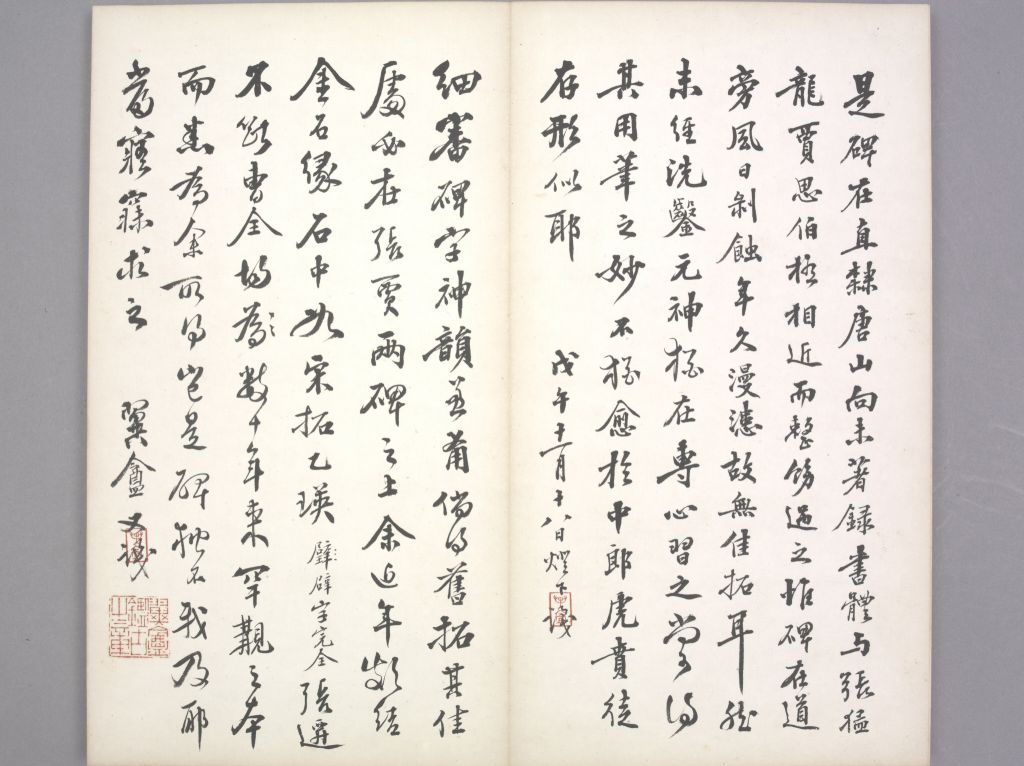 是碑在直隸唐山向未著錄書體与張猛
龍賈思伯極相近而整飭過之惟碑在道
旁風日剝蝕年久漫漶故無佳拓耳然
未經洗鑿元神猶在專心習之尚可得
其用筆之妙不猶愈於中郎虎賁徒
存形似耶
戊午十二月十八日燈下
細審碑字神韻並茂倘得舊拓其佳
處必在張賈兩碑之上余近年頗結
金石緣石中如宋拓乙瑛
辟辟字完全
張遷
不斷曹全
為數十年來罕覯之本
而悉為余所得豈是碑獨不我及耶
當寤寐求之
翼盦又識